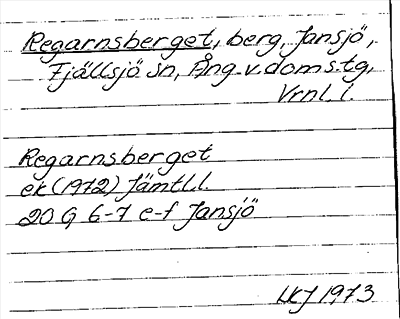 Regarnsberget, berg, Jansjö,
Fjällsjö sn, Ång. v. doms.tg,
Vrnl. l.
Regarnsberget
ek (1972) Jämtl. l.
20 G 6-7 e-f Jansjö
1973